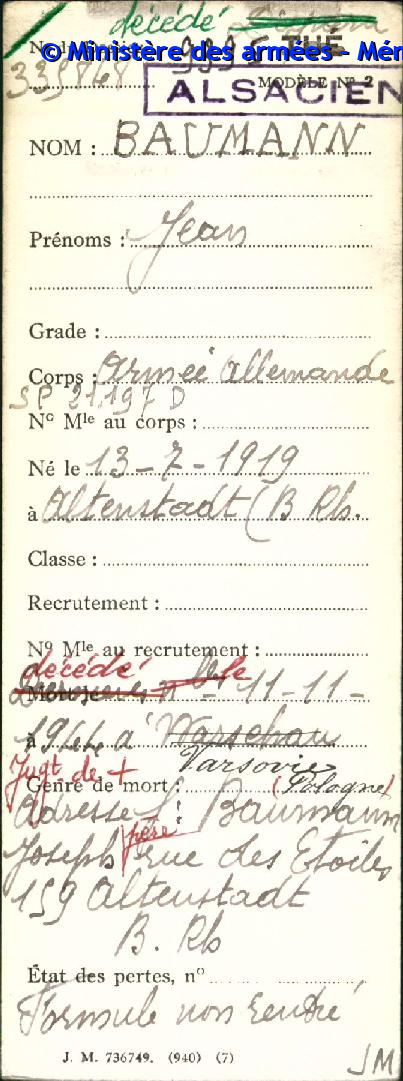 décédé
© Ministère des armées - Mém
339848
MODÈLE Nº 2
ALSACIEN
NOM : BAUMANN
Prénoms : Jean
Grade :
Corps : Armée Allemande
SP 21.197 D
Nº Mle au corps :
Né le 13-7-1919
à Altenstadt (B Rh.
Classe :
Recrutement :
Nº Mle au recrutement :
décédé le
11-11-
1944 à Warschau
Varsovie
Jugt de + (Pologne)
Genre de mort :
Adresse : Baumann
Joseph père rue des Etoiles
159 Altenstadt
B. Rh
État des pertes, nº
Formule non rentré
J. M. 736749. (940) (7)
JM